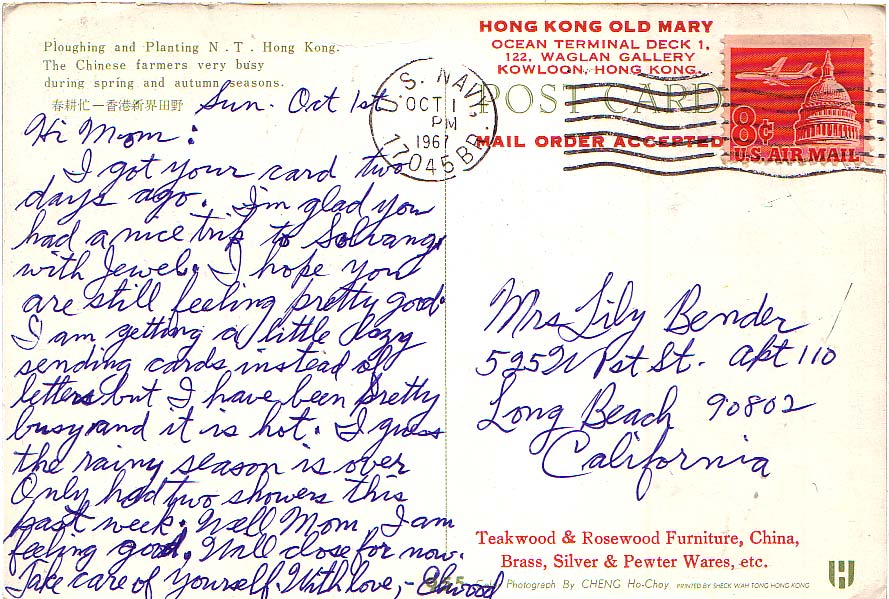 Ploughing and Planting N.T. Hong Kong.
The Chinese farmers very busy
during spring and autumn seasons.
春耕忙一香港新界田野
Sun. Oct 1st
Hi Mom:
I got your card two
days ago. I'm glad you
had a nice trip to Solvang
with Jewel. I hope you
are still feeling pretty good.
I am getting a little lazy
sending cards instead of
letters but I have been pretty
busy and it is hot. I guess
the rainy season is over
Only had two showers this
past week. Well Mom I am
feeling good. Will close for now.
Take care of Yourself. With love,- Elwood
HONG KONG OLD MARY
OCEAN TERMINAL DECK 1,
122, WAGLAN GALLERY
KOWLOON, HONG KONG.
POST CARD
MAIL ORDER ACCEPTED
U.S. NAVY
OCT 1
PM
1967
17045 BR.
8¢
U.S. AIR MAIL
Mrs Lily Bender
525 W 1st St. Apt 110
Long Beach 90802
California
Teakwood & Rosewood Furniture, China,
Brass, Silver & Pewter Wares, etc.
Photograph By CHENG Ho-Choy. PRINTED BY SHECK WAH TONG HONG KONG